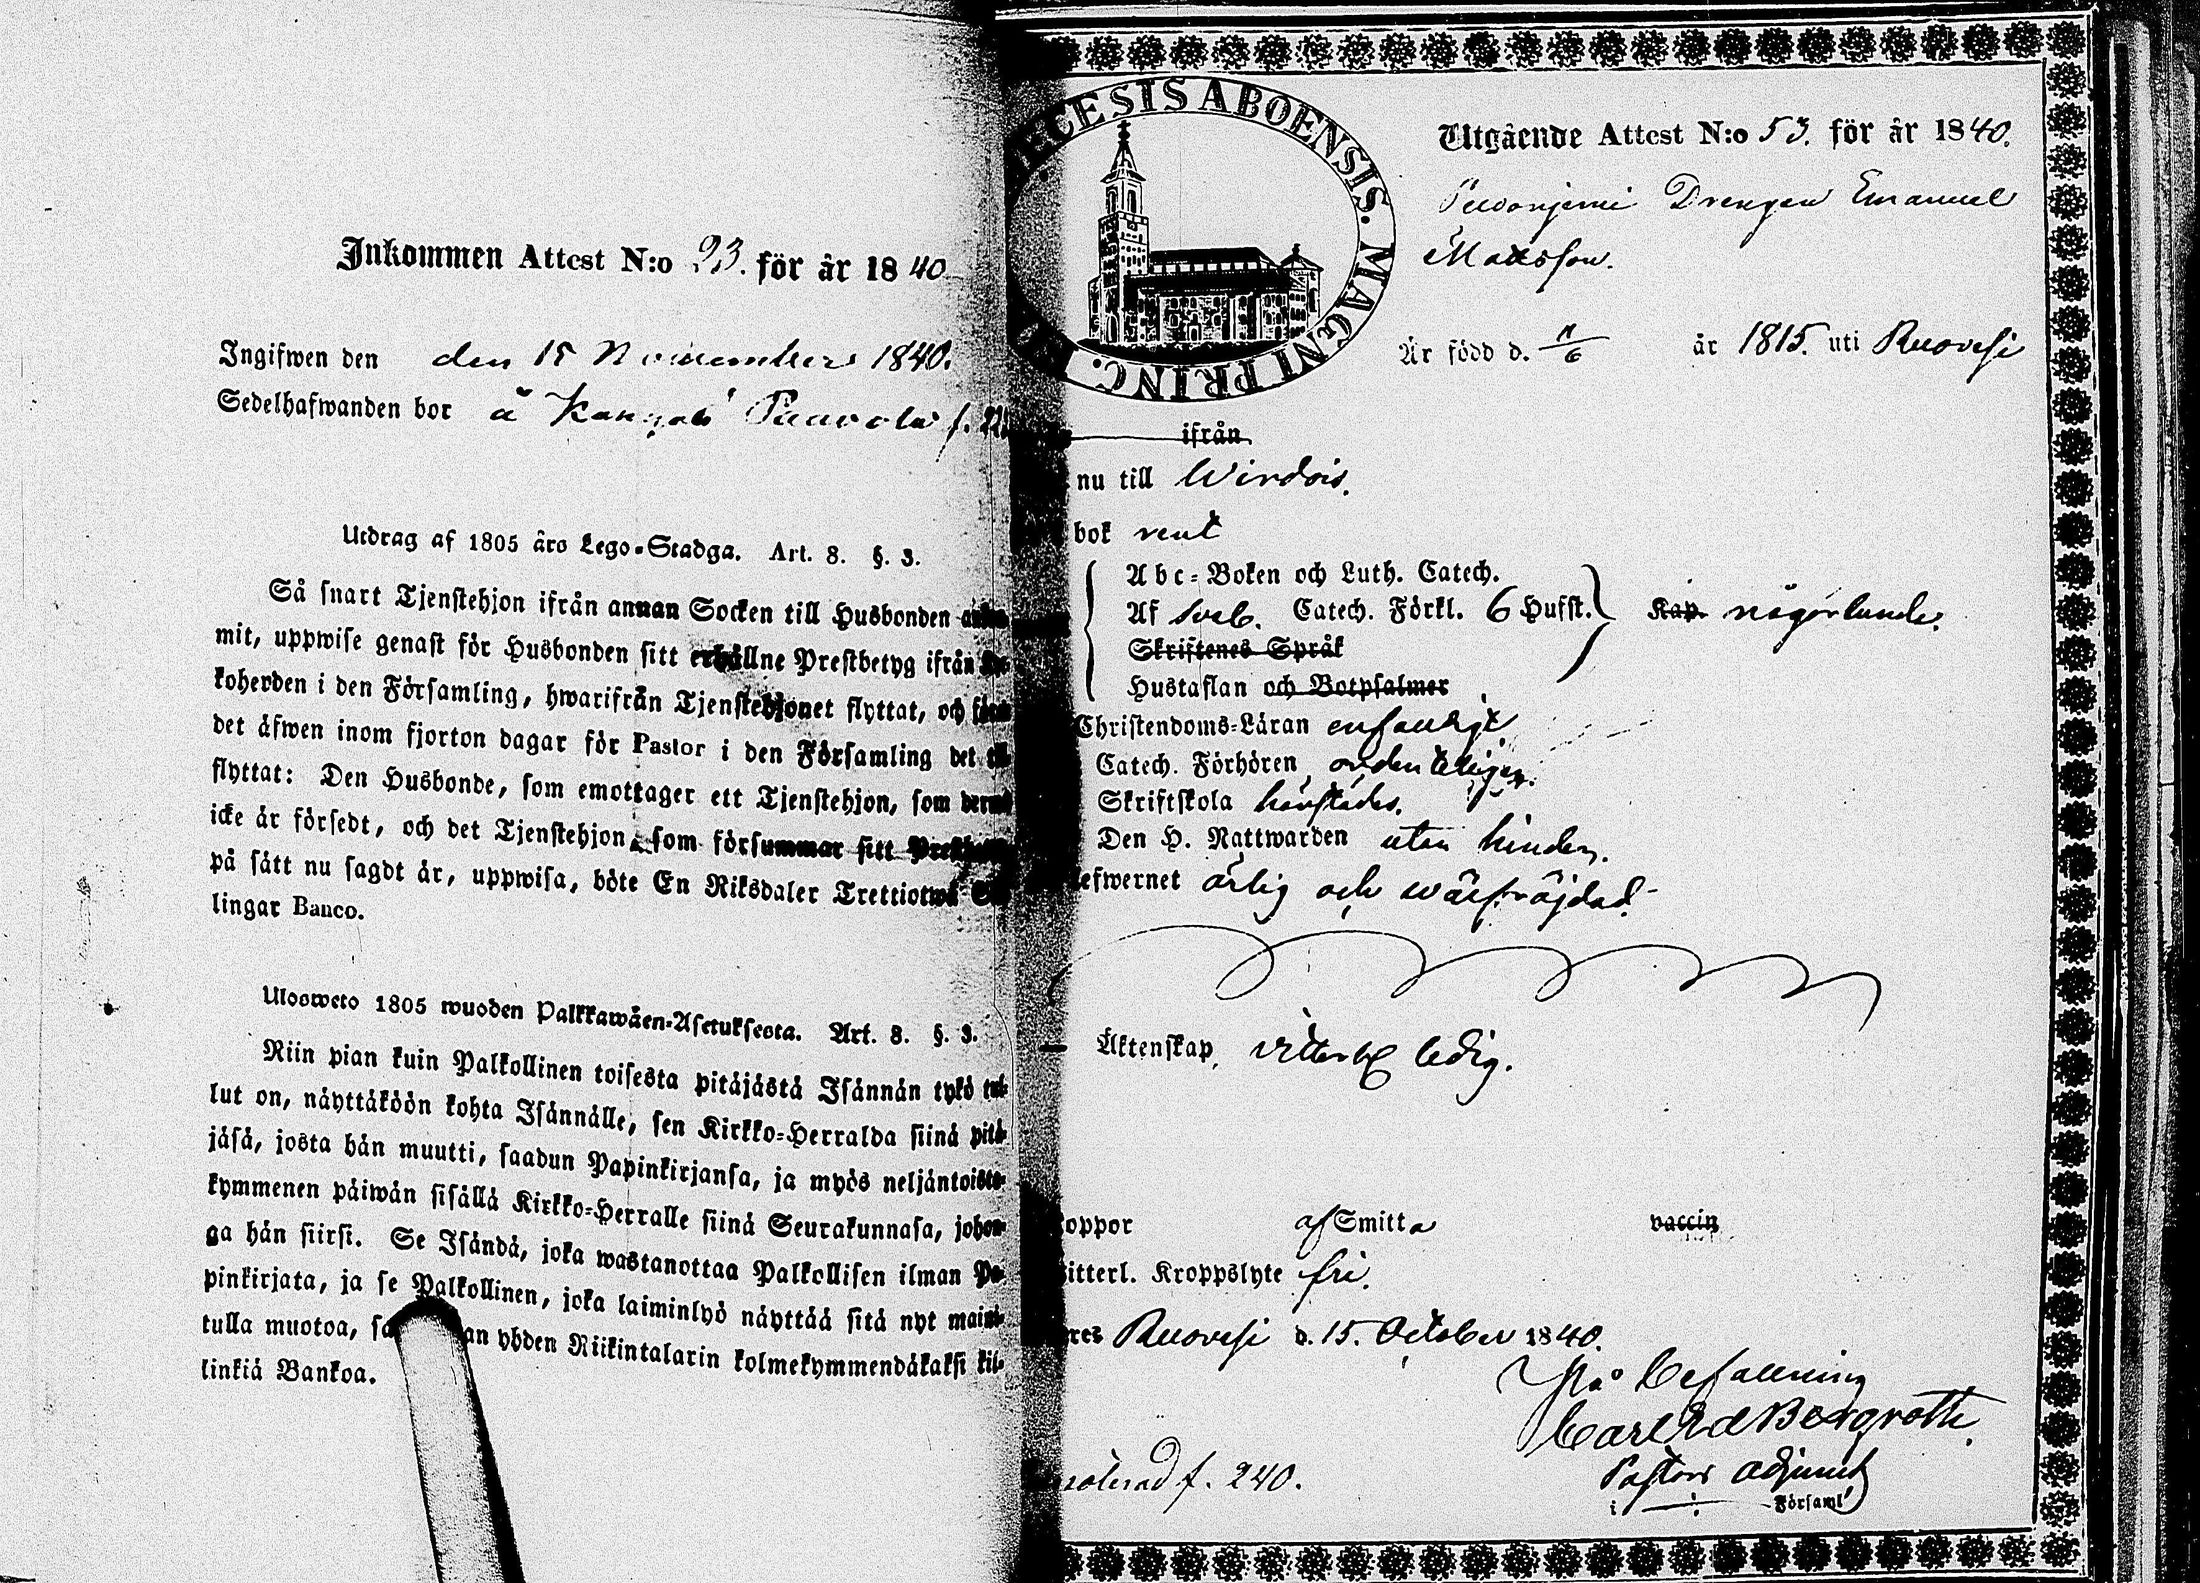 Inkommen Attest N:o 93. för år 1840
Ingifwen den den 15 November 1840.
Sedelhafwanden bor å Paavola f.
Utdrag af 1805 års Lego-Stadga. Art. 8. §. 3.
Så snart Tjenstehjon ifrån annan Socken till Husbonden
mit, uppwise genast för Husbonden sitt erhållne Prestbetyg ifrån
koherden i den Församling, hwarifrån Tjenstehjonet flyttat, och
det äfwen inom fjorton dagar för Pastor i den Församling det
flyttat: Den Husbonde, som emottager ett Tjenstehjon, som
icke är försedt, och det Tjenstehjon, som försummar sitt
på sätt nu sagdt är, uppwisa, böte En Riksdaler Trettiotwå
lingar Banco.
Ulosweto 1805 wuoden Palkkawäen-Asetuksesta. Art. 8. §. 3.
Niin pian kuin Palkollinen toisesta pitäjästä Isännän tykö tul-
lut on, näyttäköön kohta Isännälle, sen Kirkko-Herralda siinä pitä-
jäsä, josta hän muutti, saadun Papinkirjansa, ja myös neljäntoista-
kymmenen päiwän sisällä Kirkko-Herralle siinä Seurakunnasa, johon-
ga hän siirsi. Se Isändä, joka wastanottaa Palkollisen ilman Pa-
pinkirjata, ja se Palkollinen, joka laiminlyö näyttää sitä nyt maini-
tulla muotoa, yhden Riikintalarin kolmekymmendäkaksi kil-
linkiä Bankoa.
ECESIS ABOENSIS. MAGNI PRINC.
Utgående Attest N:o 53. för år 1840.
Drengen Emanuel
Mattsson.
Är född d. 11/6 år 1815. uti Ruovesi
ifrån
nu till Wirdois.
bok rent
Abc-Boken och Luth. Catech.
Af Sveb. Catech. Förkl. 6 Hufst. Kap. någorlunda.
Skriftenes Språk
Hustaflan och Botpsalmer
Christendoms-Läran enfaldigt
Catech. Förhören ordenteligen.
Skriftskola härstädes.
Den H. Nattwarden utan hinder.
efwernet ärlig och wälfräjdad.
Äktenskap, ledig.
oppor af Smitta vaccin
itterl. Kroppslyte fri.
res Ruovesi d. 15. October 1840.
På befallning
Carl Ed Bergroth.
Pastors adjunct
i Församl
noterad f. 240.